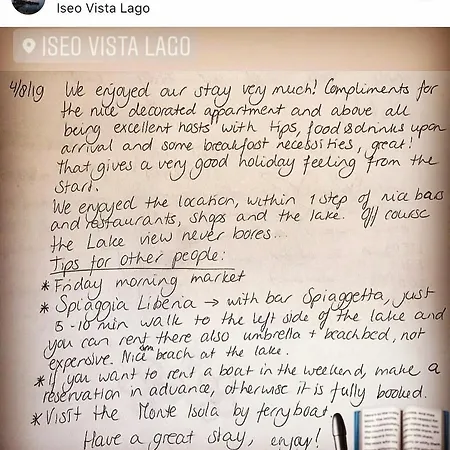 Iseo Vista Lago
ISEO VISTA LAGO
4/8/19 We enjoyed our stay very much! Compliments for
the nice decorated appartment and above all
being excellent hosts with tips, food & drinks upon
arrival and some breakfast necessities, great!
That gives a very good holiday feeling from the
start.
We enjoyed the location, within 1 step of nice bars
and restaurants, shops and the lake. Off course
the Lake view never bores...
Tips for other people:
* Friday morning market
* Spiaggia Liberia → with bar Spiaggetta, just
5-10 min walk to the left side of the lake and
you can rent there also umbrella + beachbed, not
expensive. Nice beach at the lake.
* If you want to rent a boat in the weekend, make a
reservation in advance, otherwise it is fully booked.
* Visit the Monte Isola by ferryboat
Have a great stay, enjoy!